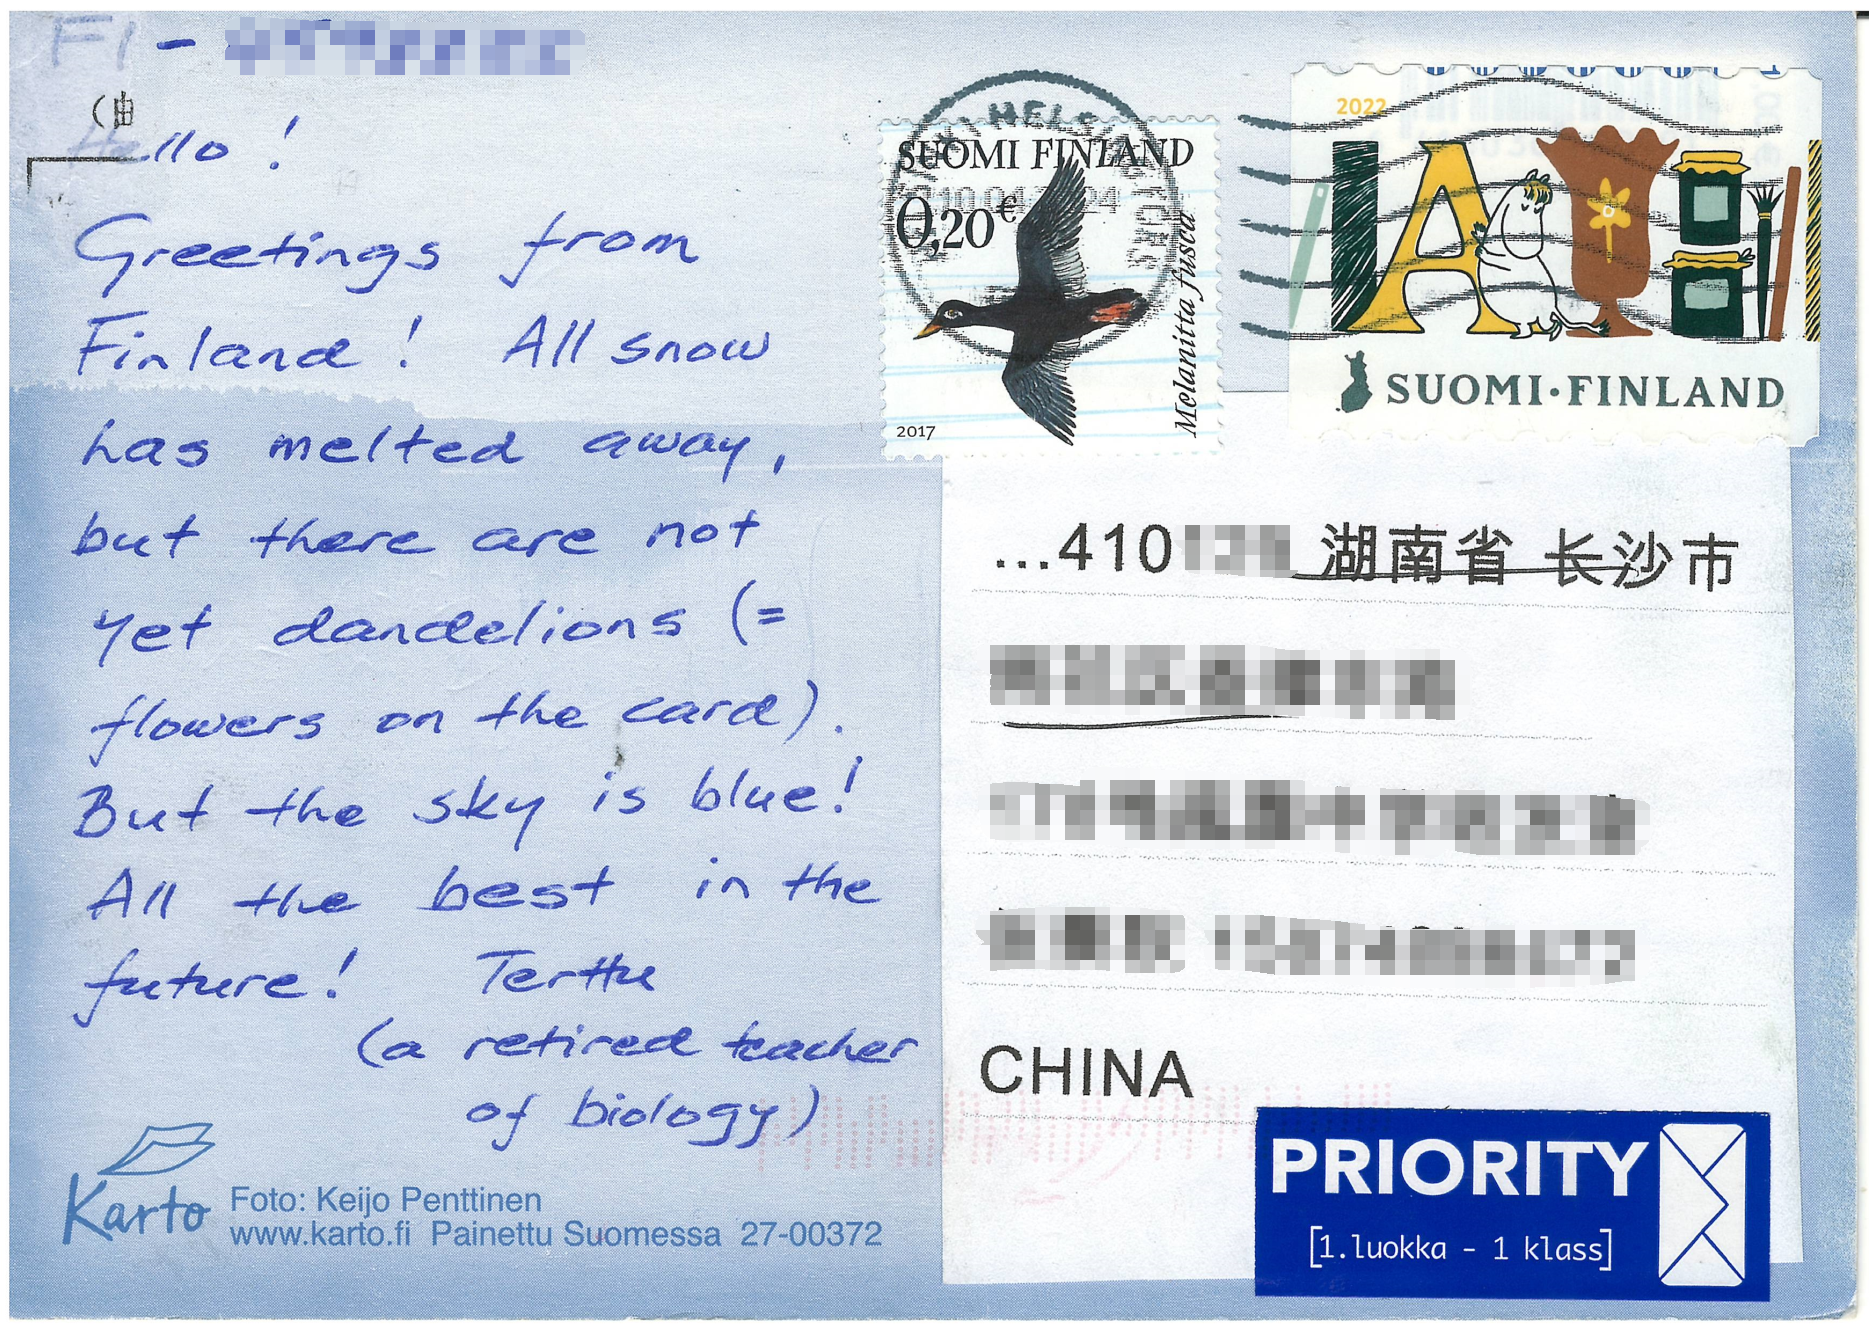 FI -
(由
Hello!
Greetings from
Finland! All snow
has melted away,
but there are not
yet dandelions (=
flowers on the card).
But the sky is blue!
All the best in the
future! Terttu
(a retired teacher
of biology)
Karto
Foto: Keijo Penttinen
www.karto.fi Painettu Suomessa 27-00372
SUOMI FINLAND
0,20€
Melanitta fusca
2017
2022
SUOMI·FINLAND
...410 湖南省 长沙市
CHINA
PRIORITY
[1.luokka - 1 klass]